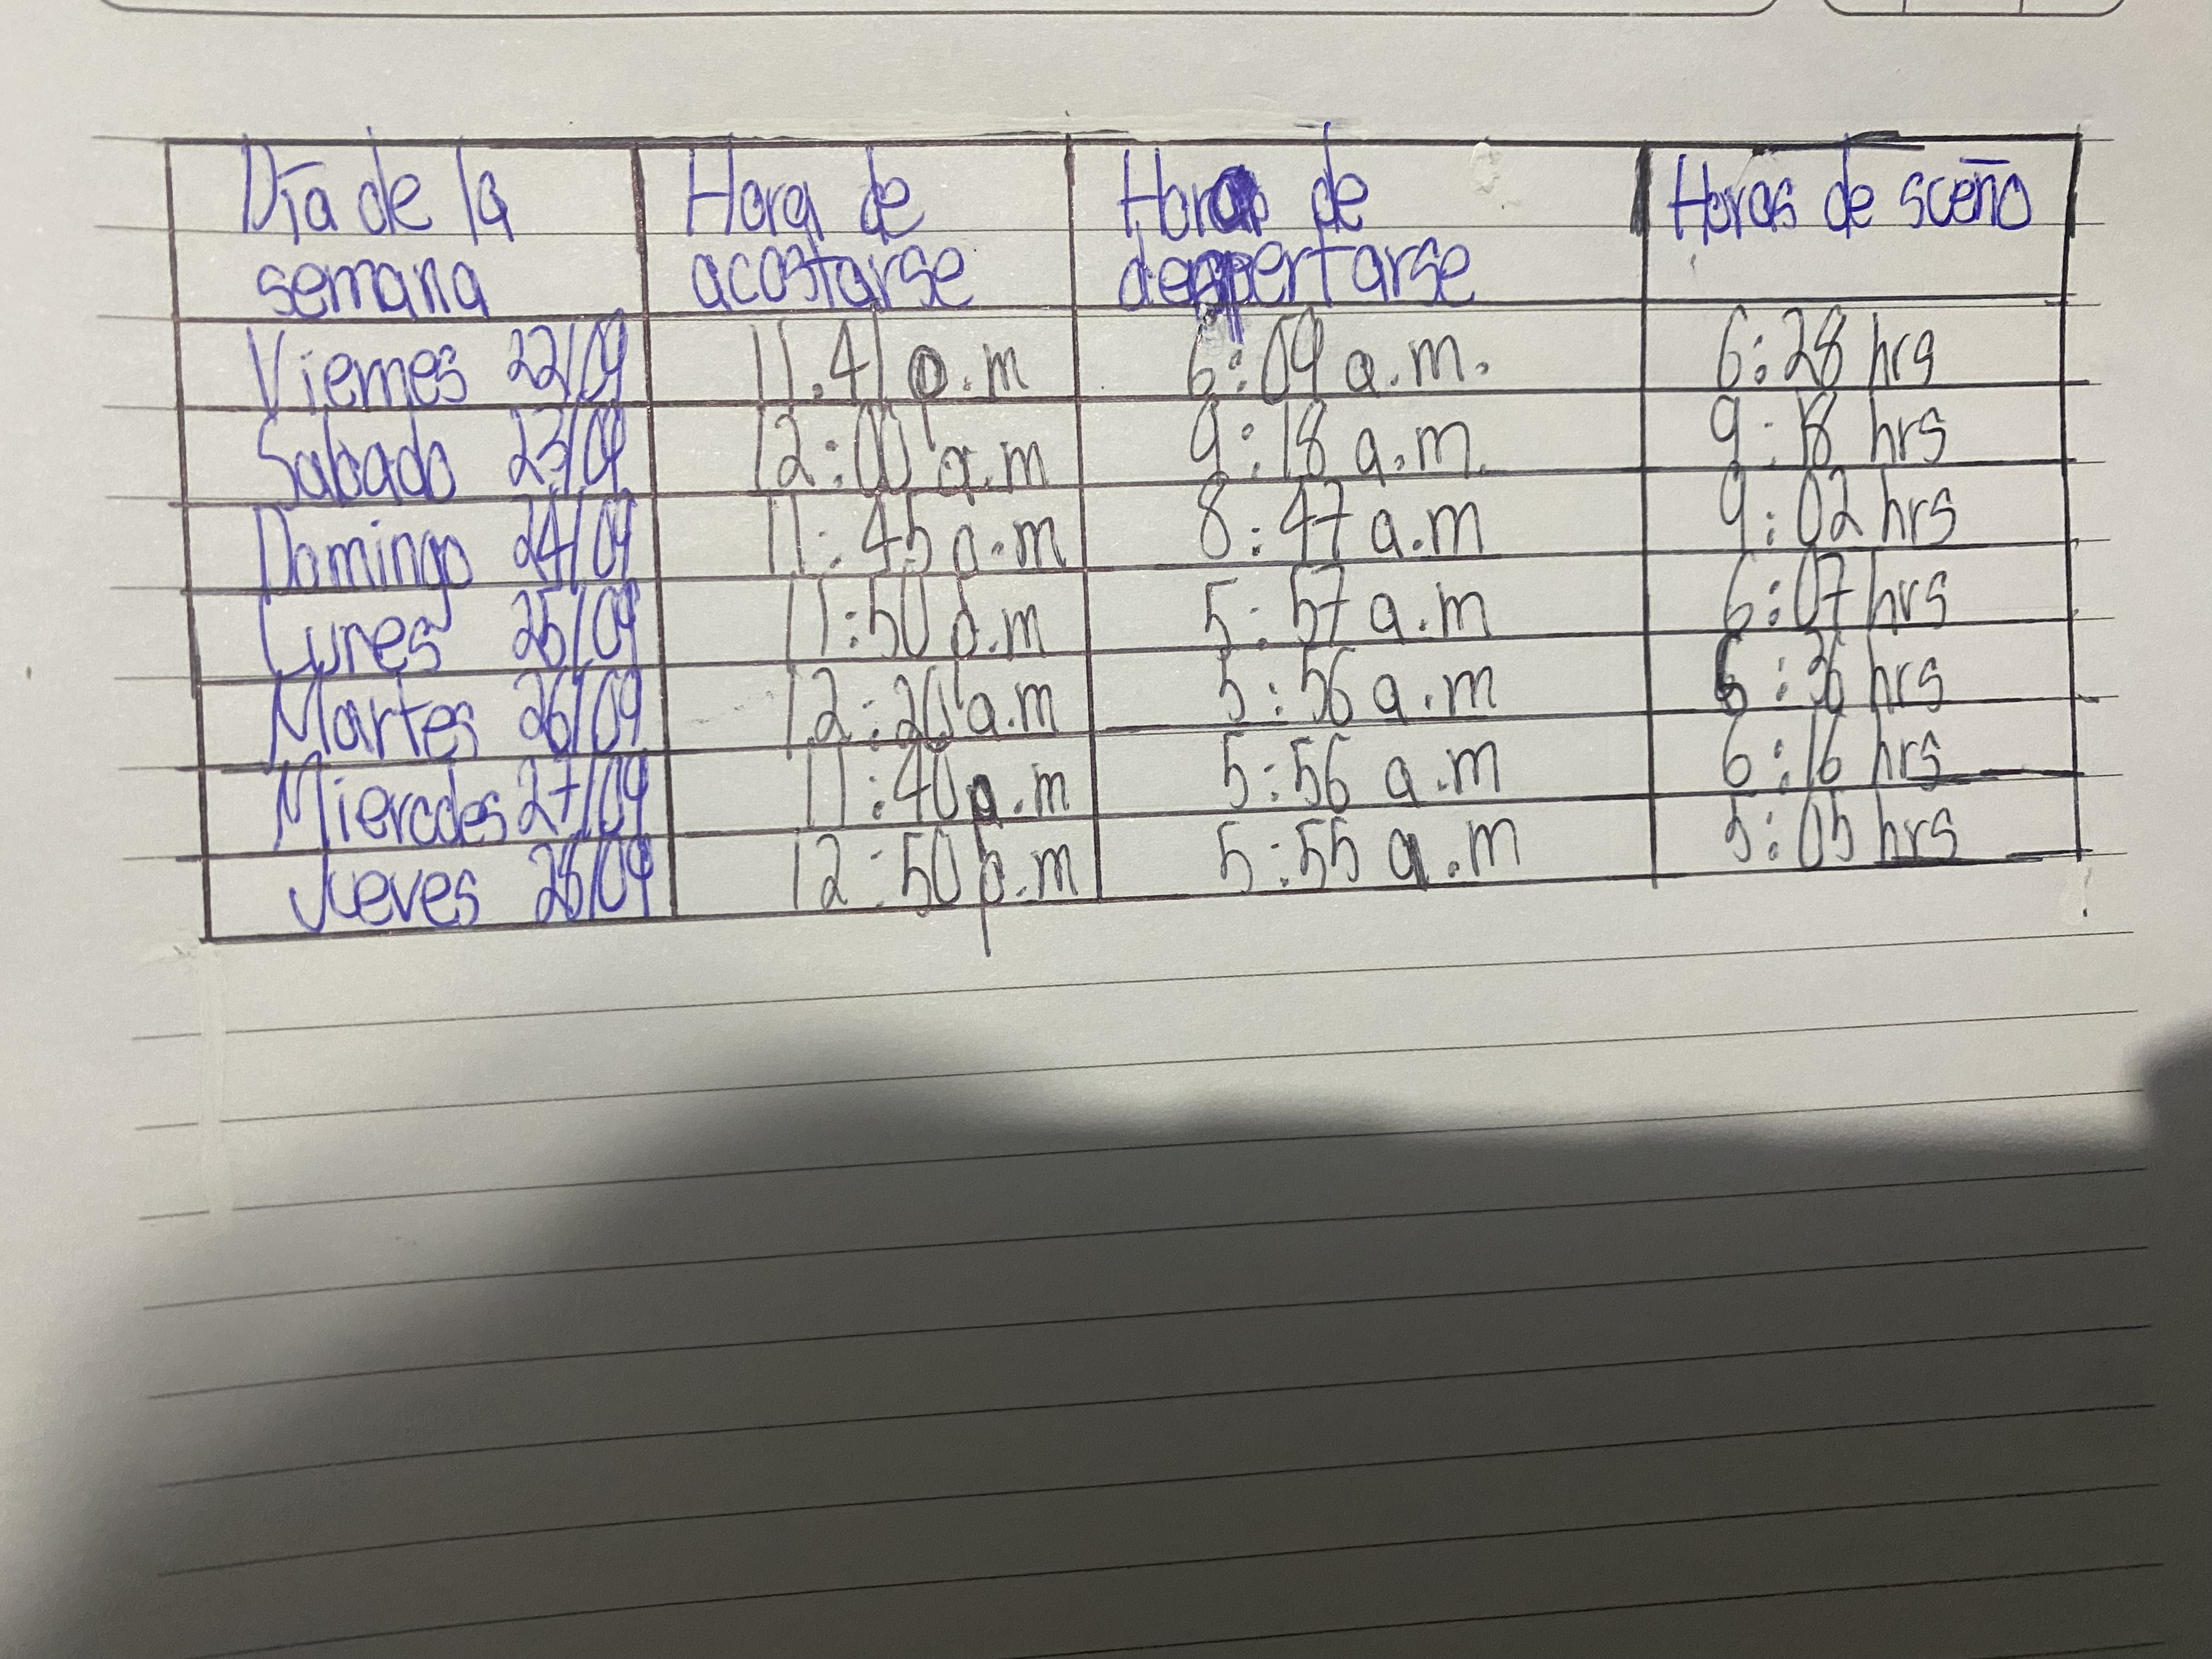 Día de la semana Hora de acostarse Horas de despertarse Horas de sceño
Viernes 22/09 11:41 p.m 6:09 a.m. 6:28 hrs
Sabado 23/09 12:00 a.m 9:18 a.m. 9:18 hrs
Domingo 24/09 11:45 p.m 8:47 a.m 9:02 hrs
Lunes 25/09 11:50 p.m 5:57 a.m 6:07 hrs
Martes 26/09 12:20 a.m 5:56 a.m 6:36 hrs
Miercoles 27/09 11:40 p.m 5:56 a.m 6:16 hrs
Jueves 28/09 12:50 p.m 5:55 a.m 5:05 hrs